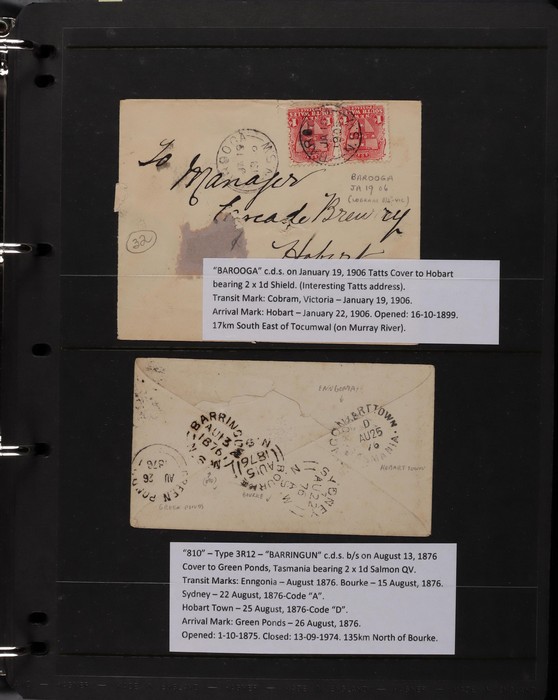 SOUTH WALES
BAROOGA
JA 19
N.S.W
To Manager
Cascade Brewery
Hobart
BAROOGA
JA 19 06
32
"BAROOGA" c.d.s. on January 19, 1906 Tatts Cover to Hobart
bearing 2 x 1d Shield. (Interesting Tatts address).
Transit Mark: Cobram, Victoria – January 19, 1906.
Arrival Mark: Hobart – January 22, 1906. Opened: 16-10-1899.
17km South East of Tocumwal (on Murray River).
BARRINGUN
AU 13
1876
N.S.W
BOURKE
AU 15
1876
N.S.W
SYDNEY
A
AU 22
76
HOBART TOWN
D
AU 25
76
TASMANIA
HOBART TOWN
GREEN PONDS
AU 26
1876
GREEN PONDS
BOURKE
"810" – Type 3R12 – "BARRINGUN" c.d.s. b/s on August 13, 1876
Cover to Green Ponds, Tasmania bearing 2 x 1d Salmon QV.
Transit Marks: Enngonia – August 1876. Bourke – 15 August, 1876.
Sydney – 22 August, 1876-Code "A".
Hobart Town – 25 August, 1876-Code "D".
Arrival Mark: Green Ponds – 26 August, 1876.
Opened: 1-10-1875. Closed: 13-09-1974. 135km North of Bourke.